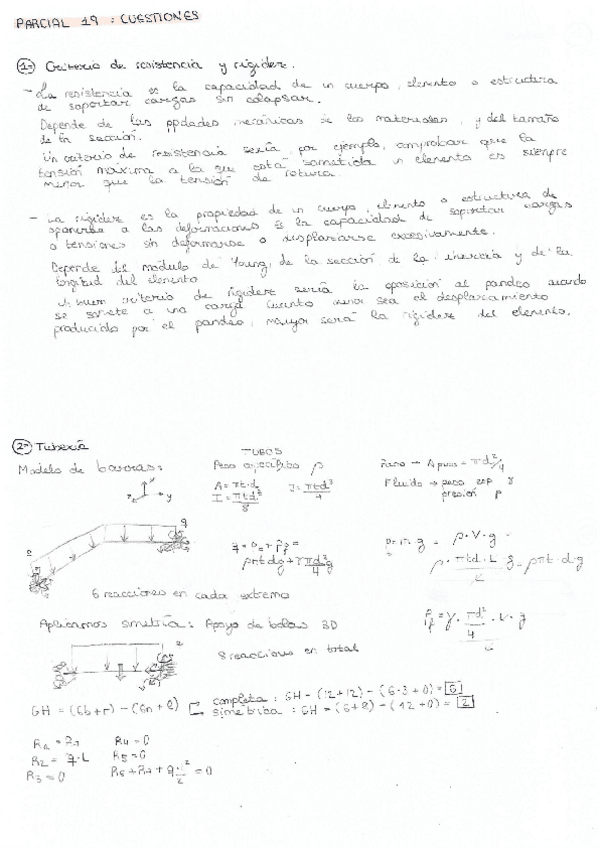 PARCIAL 19 : CUESTIONES
1- Criterio de resistencia y rigidez.
- La resistencia es la capacidad de un cuerpo, elemento o estructura
de soportar cargas sin colapsar.
Depende de las ppdades mecánicas de los materiales, y del tamaño
de la sección.
Un criterio de resistencia sería, por ejemplo, comprobar que la
tensión máxima a la que está sometida un elemento es siempre
menor que la tensión de rotura
- La rigidez es la propiedad de un cuerpo, elemento o estructura de
oponerse a las deformaciones. Es la capacidad de soportar cargas
o tensiones sin deformarse o desplazarse excesivamente.
Depende del módulo de Young, de la sección, de la inercia y de la
longitud del elemento
Un criterio de rigidez sería la oposición al pandeo cuando
se somete a una carga. Cuanto menor sea el desplazamiento
producido por el pandeo, mayor será la rigidez del elemento.
2- Tubería
TUBOS
Modelo de barras:
Peso específico ρ
A = πt·d
J = πtd³/4
I = πtd³/8
→ Apuas = πd²/4
Fluido → peso esp γ
presión p
q = +
ρπtdg + γπd²/4 g
m·g = ρ·V·g =
ρ· πtd·L g = ρπt·dg
6 reacciones en cada extremo
Aplicamos simetría: Apoyo de bolas 3D
= γ· πd²/4
8 reacciones en total
GH = (6b+r) - (6n+l)
completa: GH = (12+12) - (6·3+0) = 6
simétrica: GH = (6+8) - (12+0) = 2
R2 = q·L
R3 = 0
R4 = 0
R5 = 0